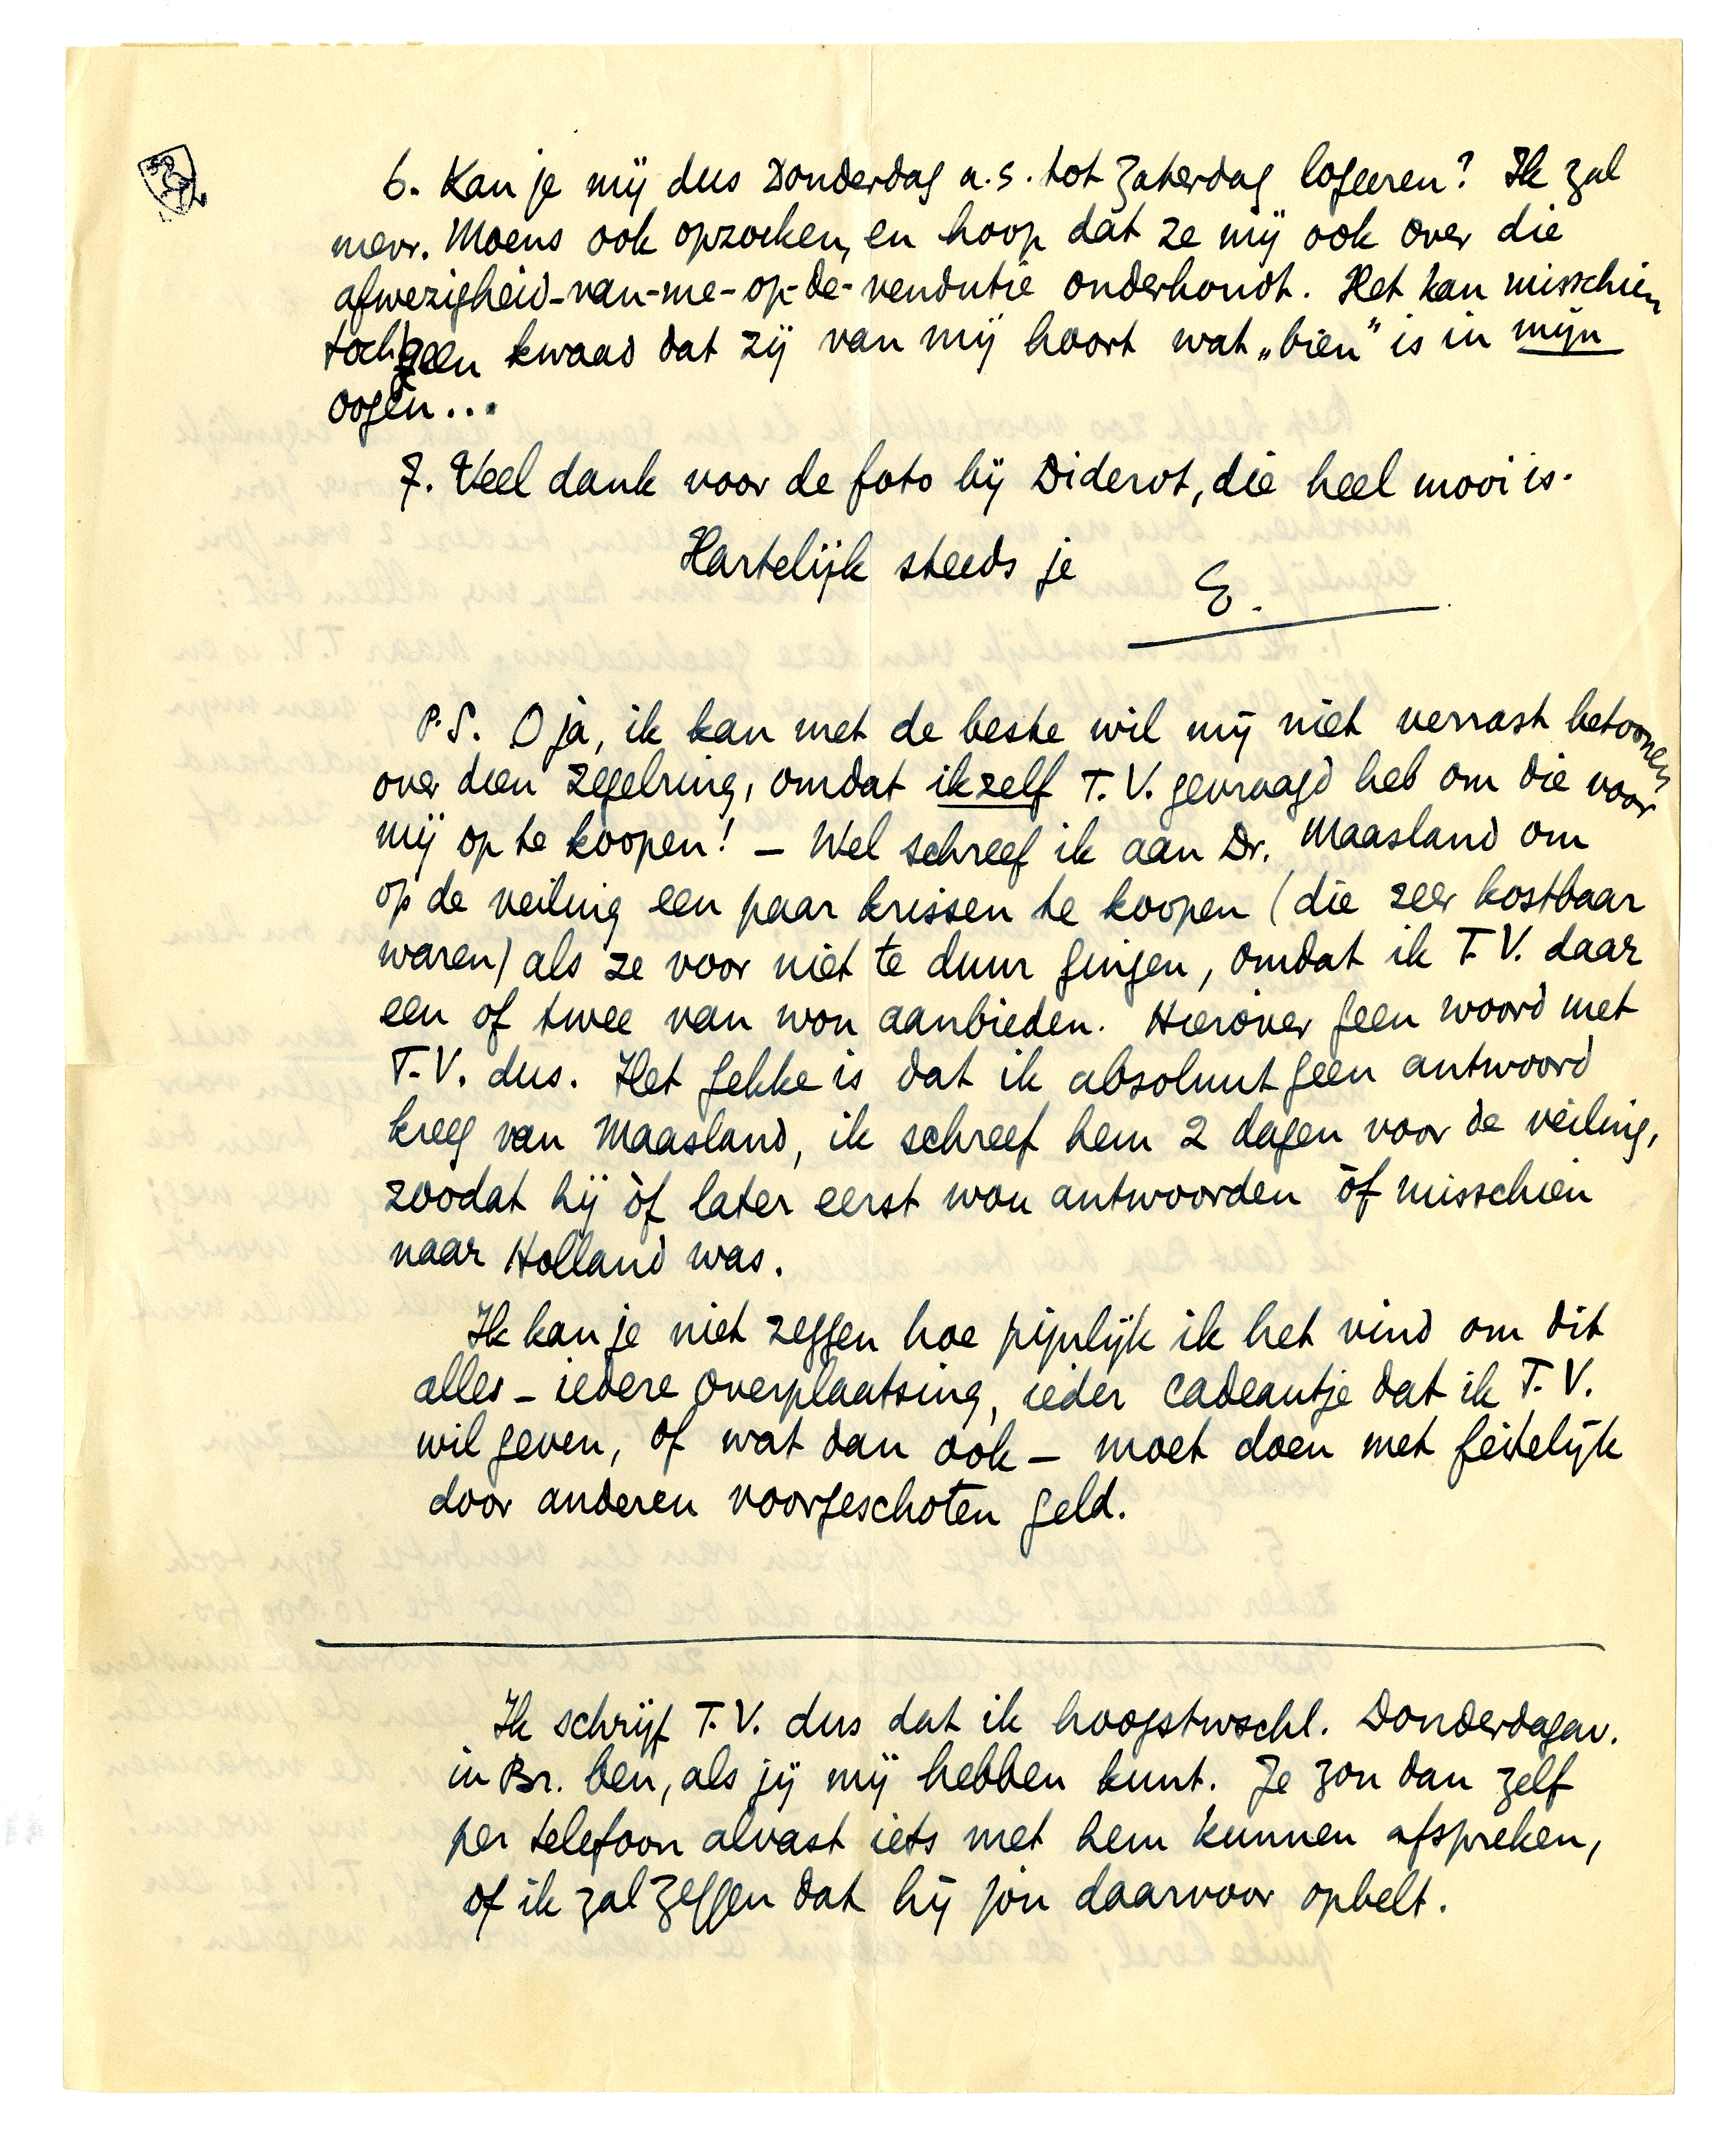 6. Kan je mij dus Donderdag a.s. tot Zaterdag logeeren? Ik zal
mevr. Moens ook opzoeken, en hoop dat ze mij ook over die
afwezigheid-van-me-op-de-vendutie onderhoudt. Het kan misschien
toch geen kwaad dat zij van mij hoort wat „bien” is in mijn
oogen...
7. Veel dank voor de foto bij Diderot, die heel mooi is.
Hartelijk steeds je E.
P.S. O ja, ik kan met de beste wil mij niet verrast betoonen
over dien zegelring, omdat ikzelf T.V. gevraagd heb om die voor
mij op te koopen! – Wel schreef ik aan Dr. Maasland om
op de veiling een paar krissen te koopen (die zeer kostbaar
waren) als ze voor niet te duur gingen, omdat ik T.V. daar
een of twee van wou aanbieden. Hierover geen woord met
T.V. dus. Het gekke is dat ik absoluut geen antwoord
kreeg van Maasland, ik schreef hem 2 dagen voor de veiling,
zoodat hij òf later eerst wou antwoorden òf misschien
naar Holland was.
Ik kan je niet zeggen hoe pijnlijk ik het vind om dit
alles – iedere overplaatsing, ieder cadeautje dat ik T.V.
wil geven, of wat dan ook – moet doen met feitelijk
door anderen voorgeschoten geld.
Ik schrijf T.V. dus dat ik hoogstwschl. Donderdagav.
in Br. ben, als jij mij hebben kunt. Je zou dan zelf
per telefoon alvast iets met hem kunnen afspreken,
of ik zal zeggen dat hij jou daarvoor opbelt.